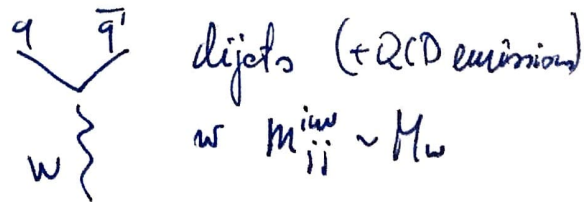 q q̄'
dijets (+QCD emissions)
w m_jj^inv ~ M_w
W